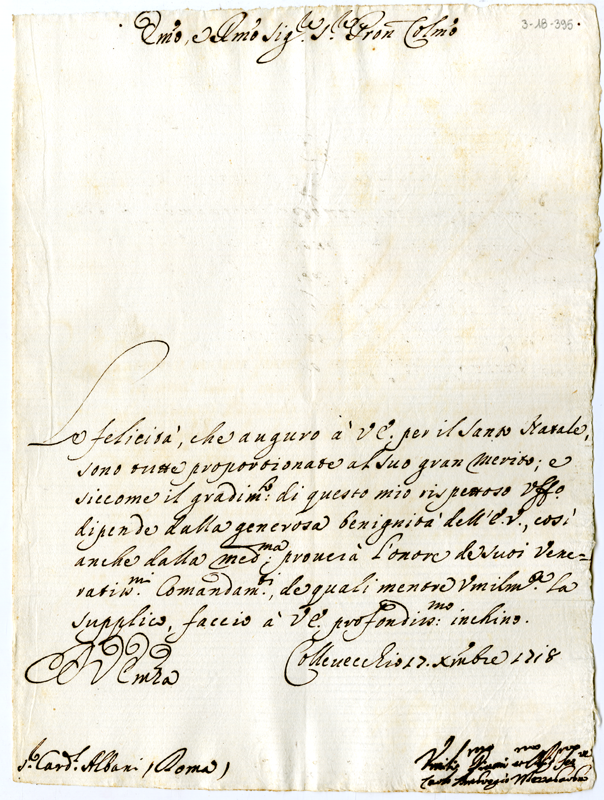 3-18-395
Emo, e Rmo Sig.re S.re Pron Colmo
Le felicità, che auguro à V.E. per il Santo Natale,
sono tutte proporzionate al suo gran merito; e
siccome il gradim.to di questo mio rispettoso Uff.o
dipende dalla generosa benignità dell'E.V., così
anche dalla med.ma proverà l'onore de suoi Vene-
ratis.mi Comandam.ti, de quali mentre Umilm.te La
supplico, faccio à V.E. profondis.mo inchino.
V Emza Collevecchio 17. Xmbre 1718
S.r Card.l Albani (Roma)
Umilis.mo
Carlo Ambrogio